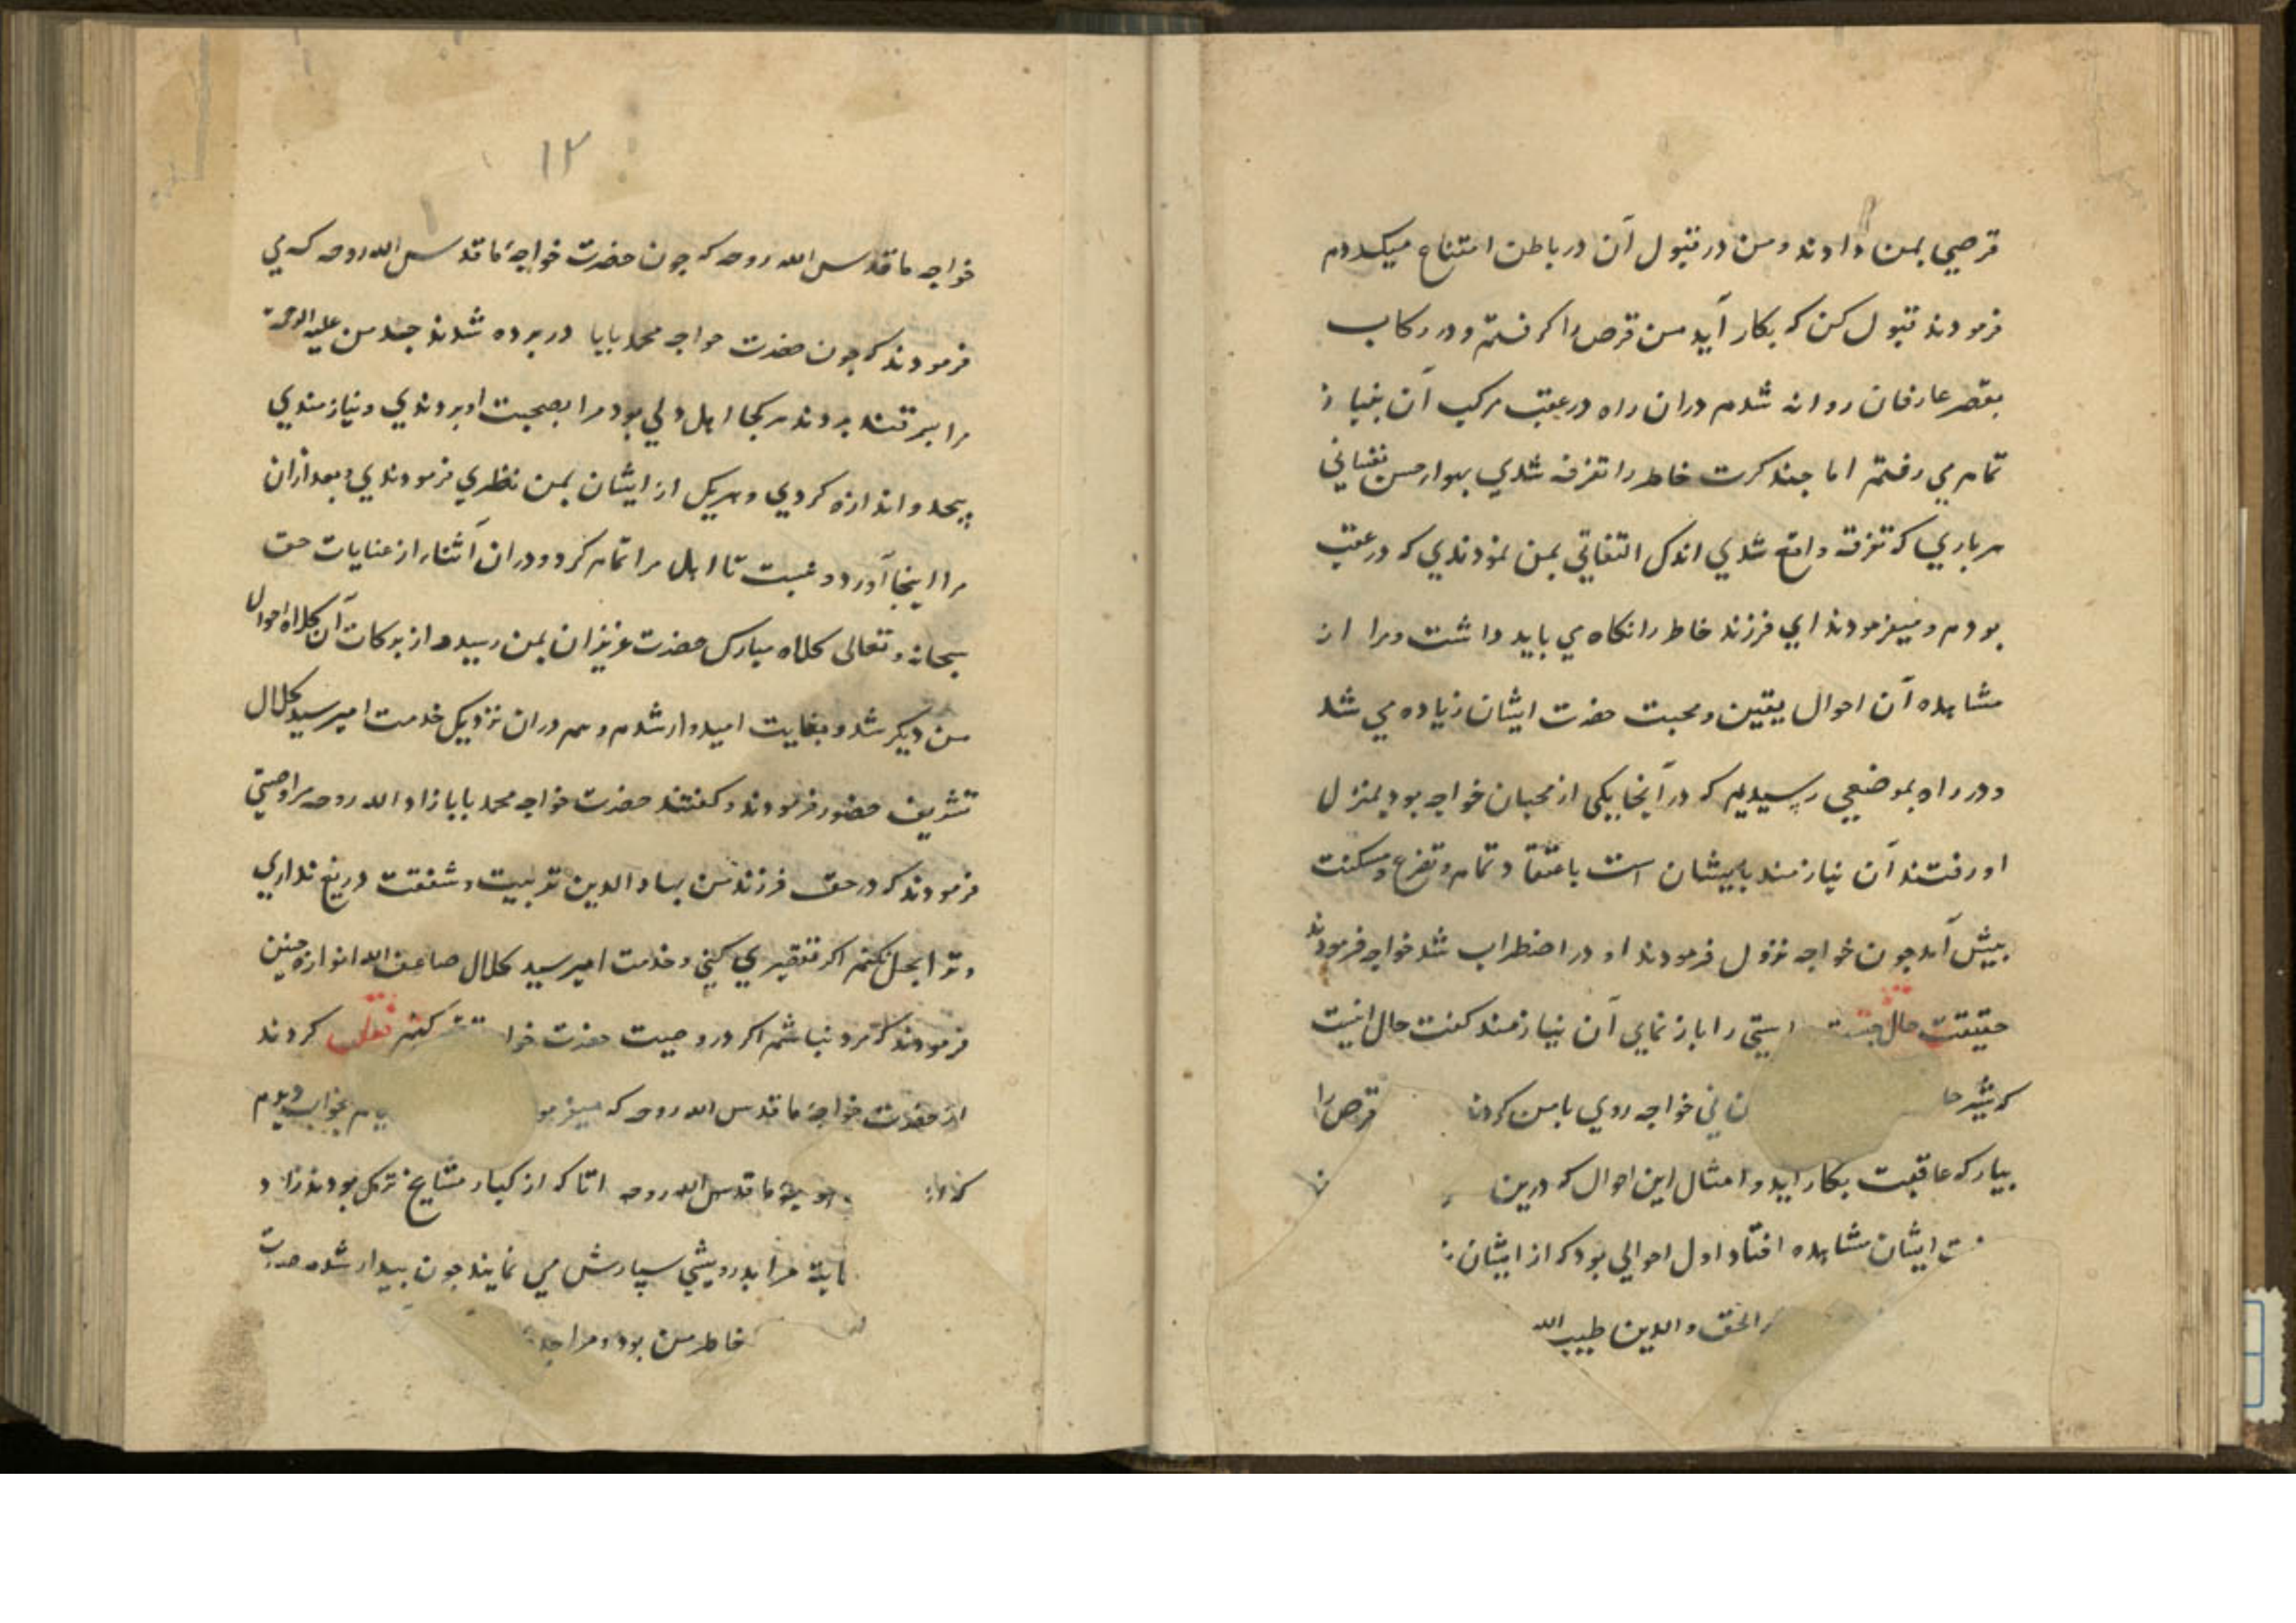 قرصي بمن دادند ومن در قبول آن در باطن امتناع ميكردم
فرمودند قبول كن كه بكار آيد من قرص را كرفتم و در ركاب
بقصر عارفان روانه شدم دران راه در عقب مركب آن بنياز
تمام مي رفتم اما جند كرت خاطر را تفرقه شدي نفساني
هر باري كه تفرقه واقع شدي اندك التفاتي بمن نمودندي كه در عقب
بودم وميفرمودند اي فرزند خاطر را نكاه مي بايد داشت ومرا از
مشاهده آن احوال يقين ومحبت حضرت ايشان زياده مي شد
و در راه بموضعي رسيديم كه در آنجا يكي از محبان خواجه بود بمنزل
او رفتند آن نيازمند باعتقاد تمام وتضرع ومسكنت
بيش آمد جون خواجه نزول فرمودند او در اضطراب شد خواجه فرمودند
حقيقت حال راستي را باز نماي آن نيازمند كفت حال انيست
كه شير ني خواجه روي با من كردند قرص را
بيار كه عاقبت بكار آيد و امثال اين احوال كه درين
ايشان مشاهده افتاد اول احوالي بود كه از ايشان
الحق والدين طيب الله
١٢
خواجه ما قدس الله روحه كه جون حضرت خواجهٔ ما قدس الله روحه كه مي
فرمودند كه جون حضرت خواجه محمد بابا در برده شدند جد من عليه الرحمة
مرا بسمرقند بردند هر كجا اهل دلي بود مرا بصحبت او بردندي ونيازمندي
بيحد و اندازه كردي و هر يك از ايشان بمن نظري فرمودندي وبعد ازان
مرا اينجا آورد و نسبت تا اهل مرا تمام كرد و دران اثنا از عنايات حق
سبحانه و تعالى كلاه مبارك حضرت عزيزان بمن رسيد و از بركات آن كلاه احوال
من ديكر شد و بغايت اميدوار شدم و هم دران نزديك خدمت امير سيد كلال
تشريف حضور فرمودند و كفتند حضرت خواجه محمد بابا زاد الله روحه مرا وصيتي
فرمودند كه در حق فرزند من بهاء الدين تربيت و شفقت دريغ نداري
و ترا بحل نكنم اكر تقصيري كني و خدمت امير سيد كلال ضاعف الله انواره جنين
فرمودند كه مرد نباشم اكر در وصيت حضرت خواجه كنم نقلست كردند
از حضرت خواجهٔ ما قدس الله روحه كه بخواب ديدم
ما قدس الله روحه اتا كه از كبار مشايخ ترك بودند زاد
مرا بدرويشي سپارش مي نمايند جون بيدار شدم صورت
خاطر من بود و مرا